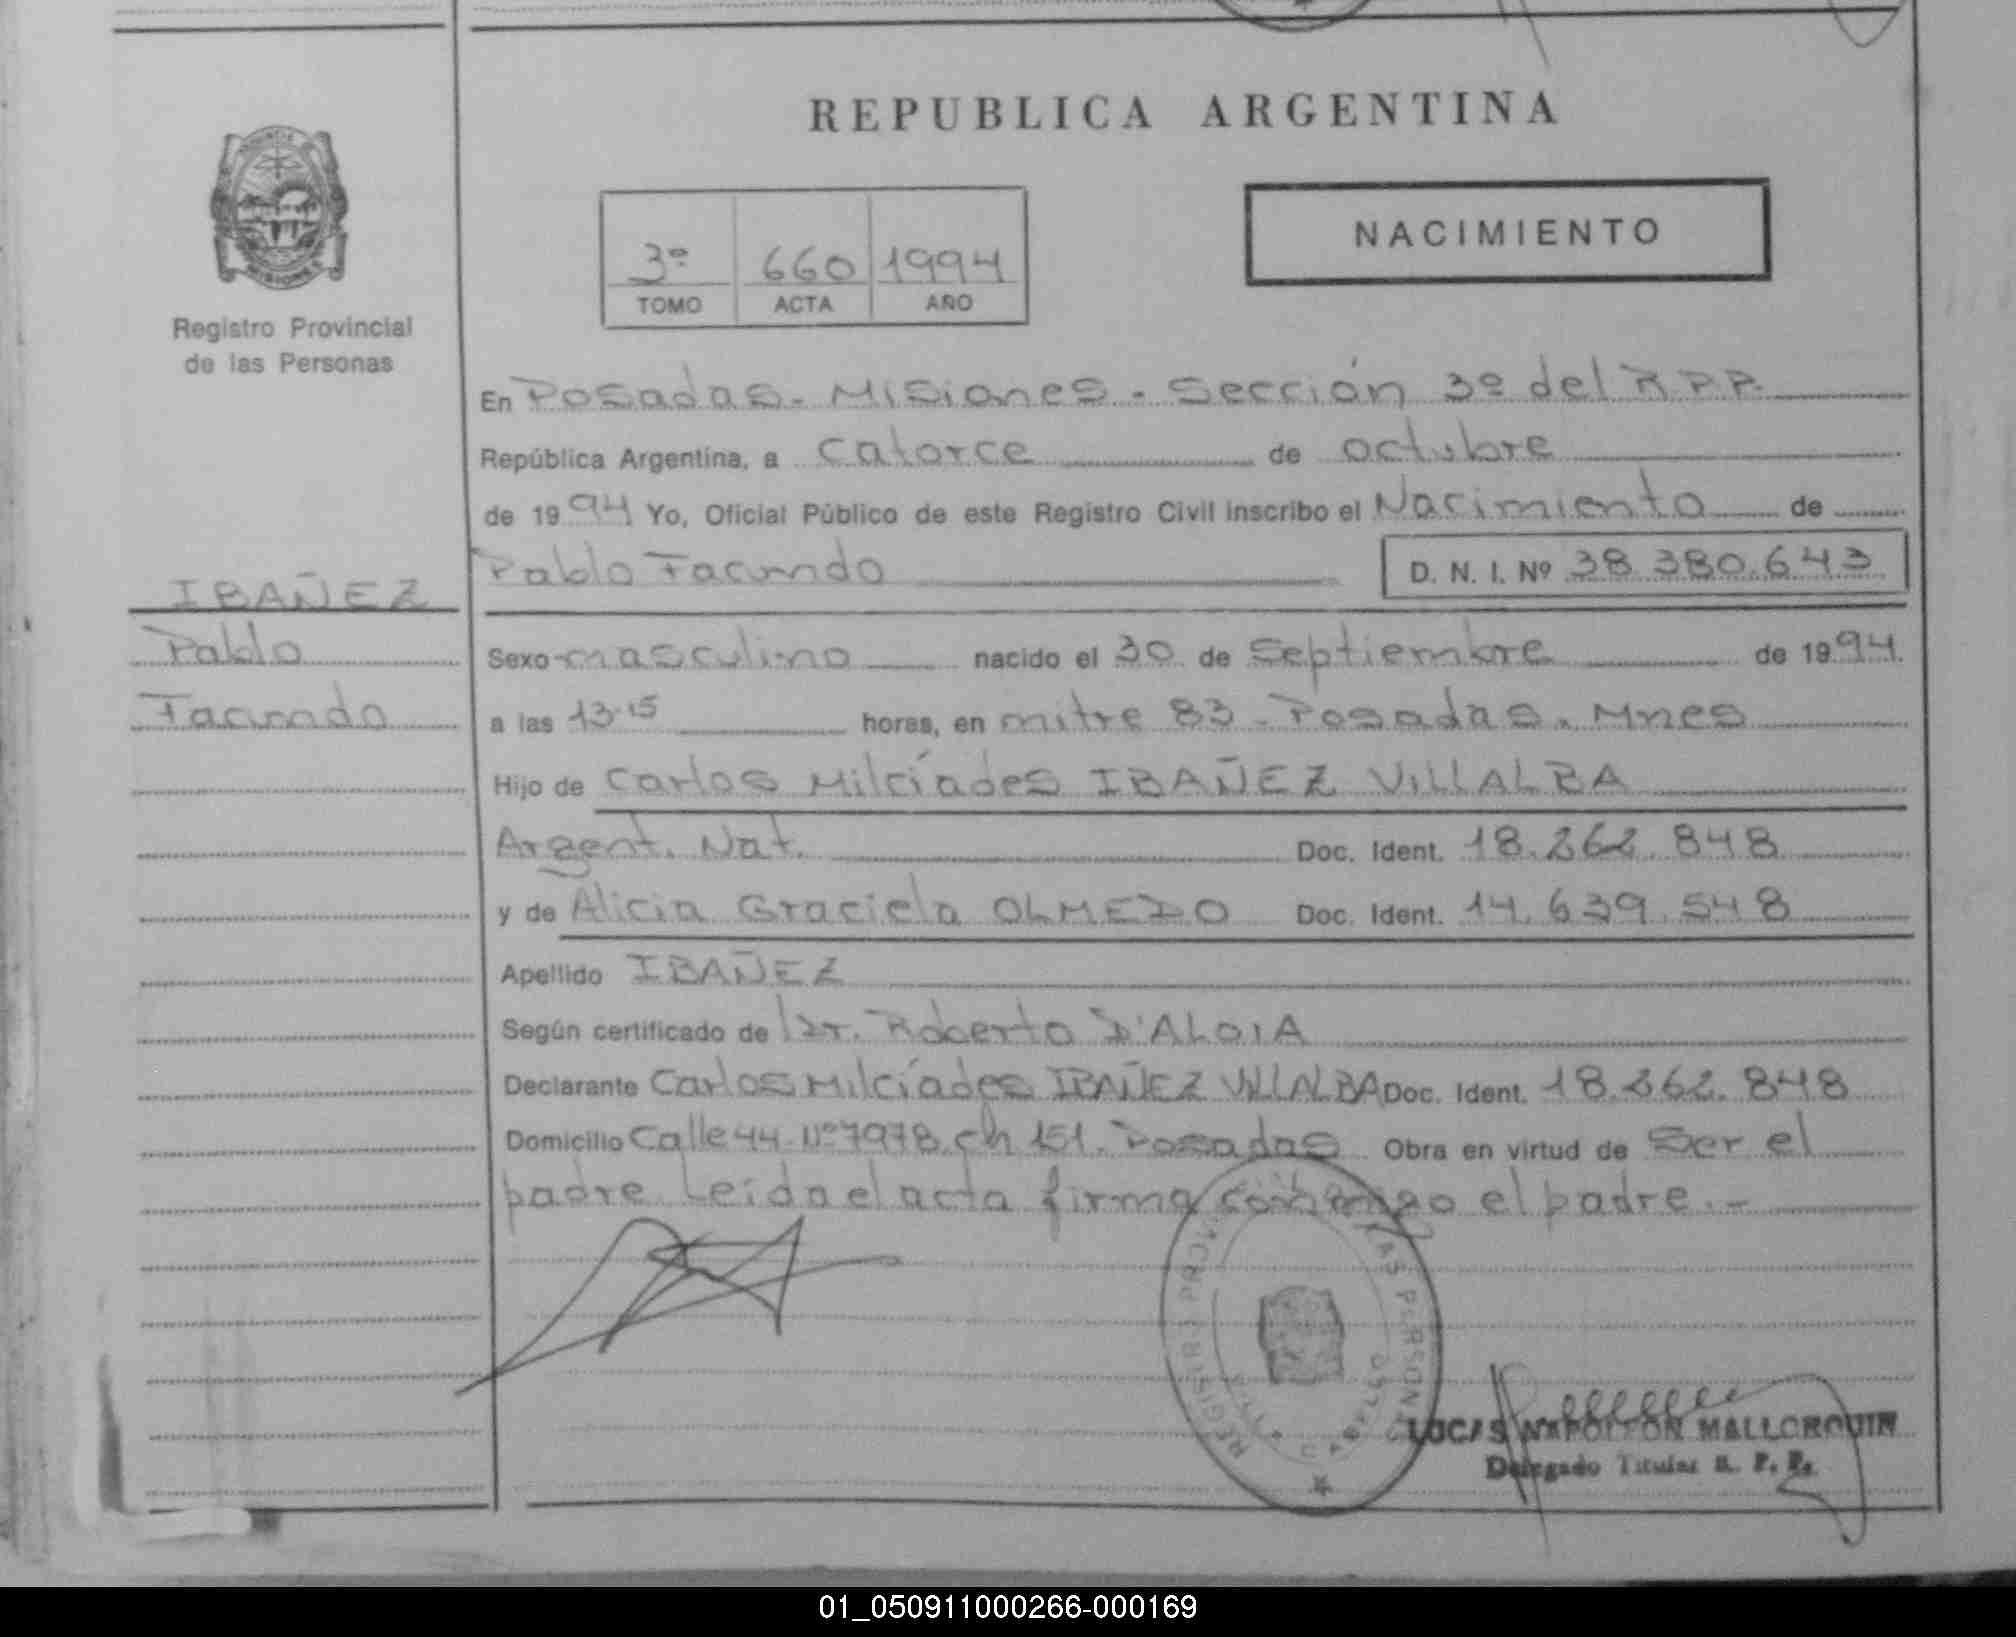 REPUBLICA ARGENTINA
NACIMIENTO
3º 660 1994
TOMO ACTA AÑO
MISIONES
Registro Provincial
de las Personas
En Posadas - Misiones - Sección 3º del R.P.P.
República Argentina, a catorce de octubre
de 1994 Yo, Oficial Público de este Registro Civil inscribo el Nacimiento de
Pablo Facundo D. N. I. Nº 38.380.643
IBAÑEZ
Pablo
Facundo
Sexo masculino nacido el 30 de Septiembre de 1994.
a las 13.15 horas, en mitre 83 - Posadas - Mnes
Hijo de Carlos Milcíades IBAÑEZ VILLALBA
Argent. Nat. Doc. Ident. 18.262.848
y de Alicia Graciela OLMEDO Doc. Ident. 14.639.548
Apellido IBAÑEZ
Según certificado de Dr. Roberto D'ALOIA
Declarante Carlos Milcíades IBAÑEZ VILLALBA Doc. Ident. 18.262.848
Domicilio Calle 44 - Nº 7978. ch 151. Posadas Obra en virtud de Ser el
padre Leida el acta firma conmigo el padre.-
REGISTRO PERSONAS
LUCAS NAPOLEON MALLORQUIN
Delegado Titular R. P. P.
01_050911000266-000169